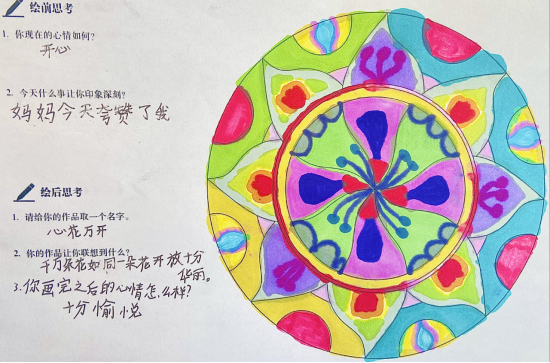 绘前思考
1. 你现在的心情如何?
开心
2. 今天什么事让你印象深刻?
妈妈今天夸赞了我
绘后思考
1. 请给你的作品取一个名字。
心花万开
2. 你的作品让你联想到什么?
千万朵花如同一朵花开放十分
华丽。
3.你画完之后的心情怎么样?
十分愉悦